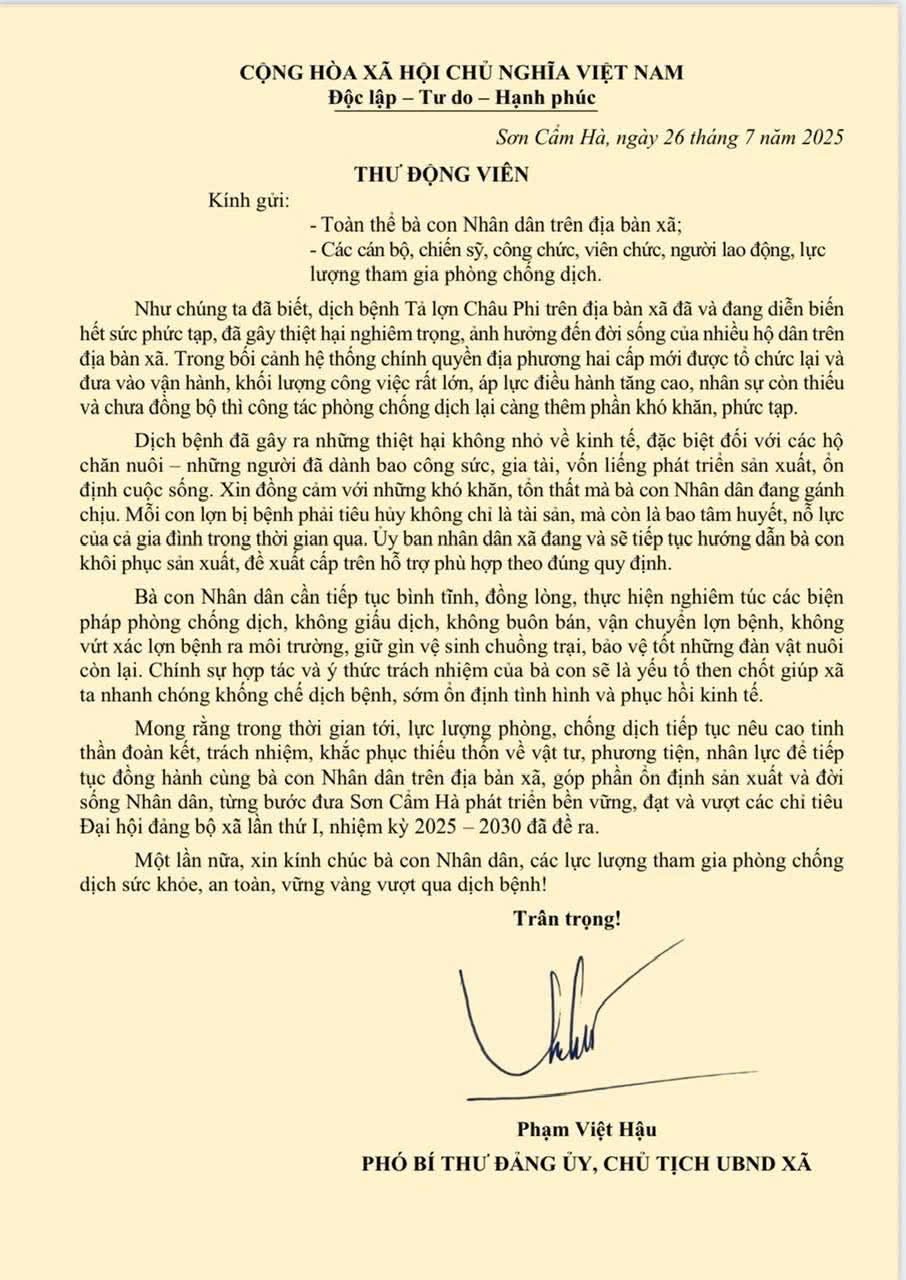 CỘNG HÒA XÃ HỘI CHỦ NGHĨA VIỆT NAM
Độc lập – Tự do – Hạnh phúc
Sơn Cẩm Hà, ngày 26 tháng 7 năm 2025
THƯ ĐỘNG VIÊN
Kính gửi:
- Toàn thể bà con Nhân dân trên địa bàn xã;
- Các cán bộ, chiến sỹ, công chức, viên chức, người lao động, lực
lượng tham gia phòng chống dịch.
Như chúng ta đã biết, dịch bệnh Tả lợn Châu Phi trên địa bàn xã đã và đang diễn biến
hết sức phức tạp, đã gây thiệt hại nghiêm trọng, ảnh hưởng đến đời sống của nhiều hộ dân trên
địa bàn xã. Trong bối cảnh hệ thống chính quyền địa phương hai cấp mới được tổ chức lại và
đưa vào vận hành, khối lượng công việc rất lớn, áp lực điều hành tăng cao, nhân sự còn thiếu
và chưa đồng bộ thì công tác phòng chống dịch lại càng thêm phần khó khăn, phức tạp.
Dịch bệnh đã gây ra những thiệt hại không nhỏ về kinh tế, đặc biệt đối với các hộ
chăn nuôi – những người đã dành bao công sức, gia tài, vốn liếng phát triển sản xuất, ổn
định cuộc sống. Xin đồng cảm với những khó khăn, tổn thất mà bà con Nhân dân đang gánh
chịu. Mỗi con lợn bị bệnh phải tiêu hủy không chỉ là tài sản, mà còn là bao tâm huyết, nỗ lực
của cả gia đình trong thời gian qua. Ủy ban nhân dân xã đang và sẽ tiếp tục hướng dẫn bà con
khôi phục sản xuất, đề xuất cấp trên hỗ trợ phù hợp theo đúng quy định.
Bà con Nhân dân cần tiếp tục bình tĩnh, đồng lòng, thực hiện nghiêm túc các biện
pháp phòng chống dịch, không giấu dịch, không buôn bán, vận chuyển lợn bệnh, không
vứt xác lợn bệnh ra môi trường, giữ gìn vệ sinh chuồng trại, bảo vệ tốt những đàn vật nuôi
còn lại. Chính sự hợp tác và ý thức trách nhiệm của bà con sẽ là yếu tố then chốt giúp xã
ta nhanh chóng khống chế dịch bệnh, sớm ổn định tình hình và phục hồi kinh tế.
Mong rằng trong thời gian tới, lực lượng phòng, chống dịch tiếp tục nêu cao tinh
thần đoàn kết, trách nhiệm, khắc phục thiếu thốn về vật tư, phương tiện, nhân lực để tiếp
tục đồng hành cùng bà con Nhân dân trên địa bàn xã, góp phần ổn định sản xuất và đời
sống Nhân dân, từng bước đưa Sơn Cẩm Hà phát triển bền vững, đạt và vượt các chỉ tiêu
Đại hội đảng bộ xã lần thứ I, nhiệm kỳ 2025 – 2030 đã đề ra.
Một lần nữa, xin kính chúc bà con Nhân dân, các lực lượng tham gia phòng chống
dịch sức khỏe, an toàn, vững vàng vượt qua dịch bệnh!
Trân trọng!
Phạm Việt Hậu
PHÓ BÍ THƯ ĐẢNG ỦY, CHỦ TỊCH UBND XÃ